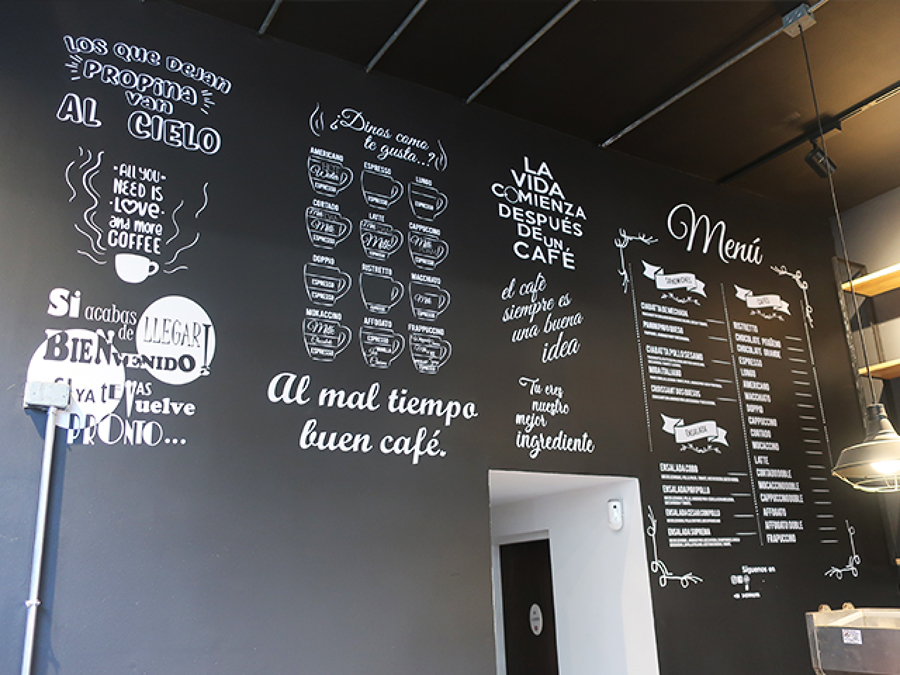 LOS QUE DEJAN
PROPINA
VAN
AL CIELO
ALL YOU
NEED IS
LOVE
and more
COFFEE
Si acabas
de
LLEGAR!
BIENVENIDO
Si YA tE VAS
Vuelve
PRONTO...
¿Dinos como
te gusta...?
AMERICANO
Water
ESPRESSO
ESPRESSO
ESPRESSO
LUNGO
ESPRESSO
CORTADO
Milk
ESPRESSO
LATTE
Milk
ESPRESSO
CAPPUCCINO
Milk
ESPRESSO
DOPPIO
ESPRESSO
ESPRESSO
RISTRETTO
ESPRESSO
MACCHIATO
Milk
ESPRESSO
MOKACCINO
Milk
Chocolate
ESPRESSO
AFFOGATO
ESPRESSO
FRAPUCCINO
Al mal tiempo
buen café.
LA
VIDA
COMIENZA
DESPUÉS
DE UN
CAFÉ
el café
siempre es
una buena
idea
Tu eres
nuestro
mejor
ingrediente
Menú
SANDWICHES
CHABATTA POLLO SESAMO
CROISSANT DOS QUESOS
ENSALADA
ENSALADA COBB
ENSALADA CESAR CON POLLO
ENSALADA SUPREMA
CAFÉS
RISTRETTO
CHOCOLATE PEQUEÑO
CHOCOLATE GRANDE
ESPRESSO
LUNGO
AMERICANO
MACCHIATO
DOPPIO
CAPPUCCINO
CORTADO
MOCACCINO
LATTE
CORTADO DOBLE
MOCACCINO DOBLE
CAPPUCCINO DOBLE
AFFOGATO
AFFOGATO DOBLE
FRAPUCCINO
Síguenos en